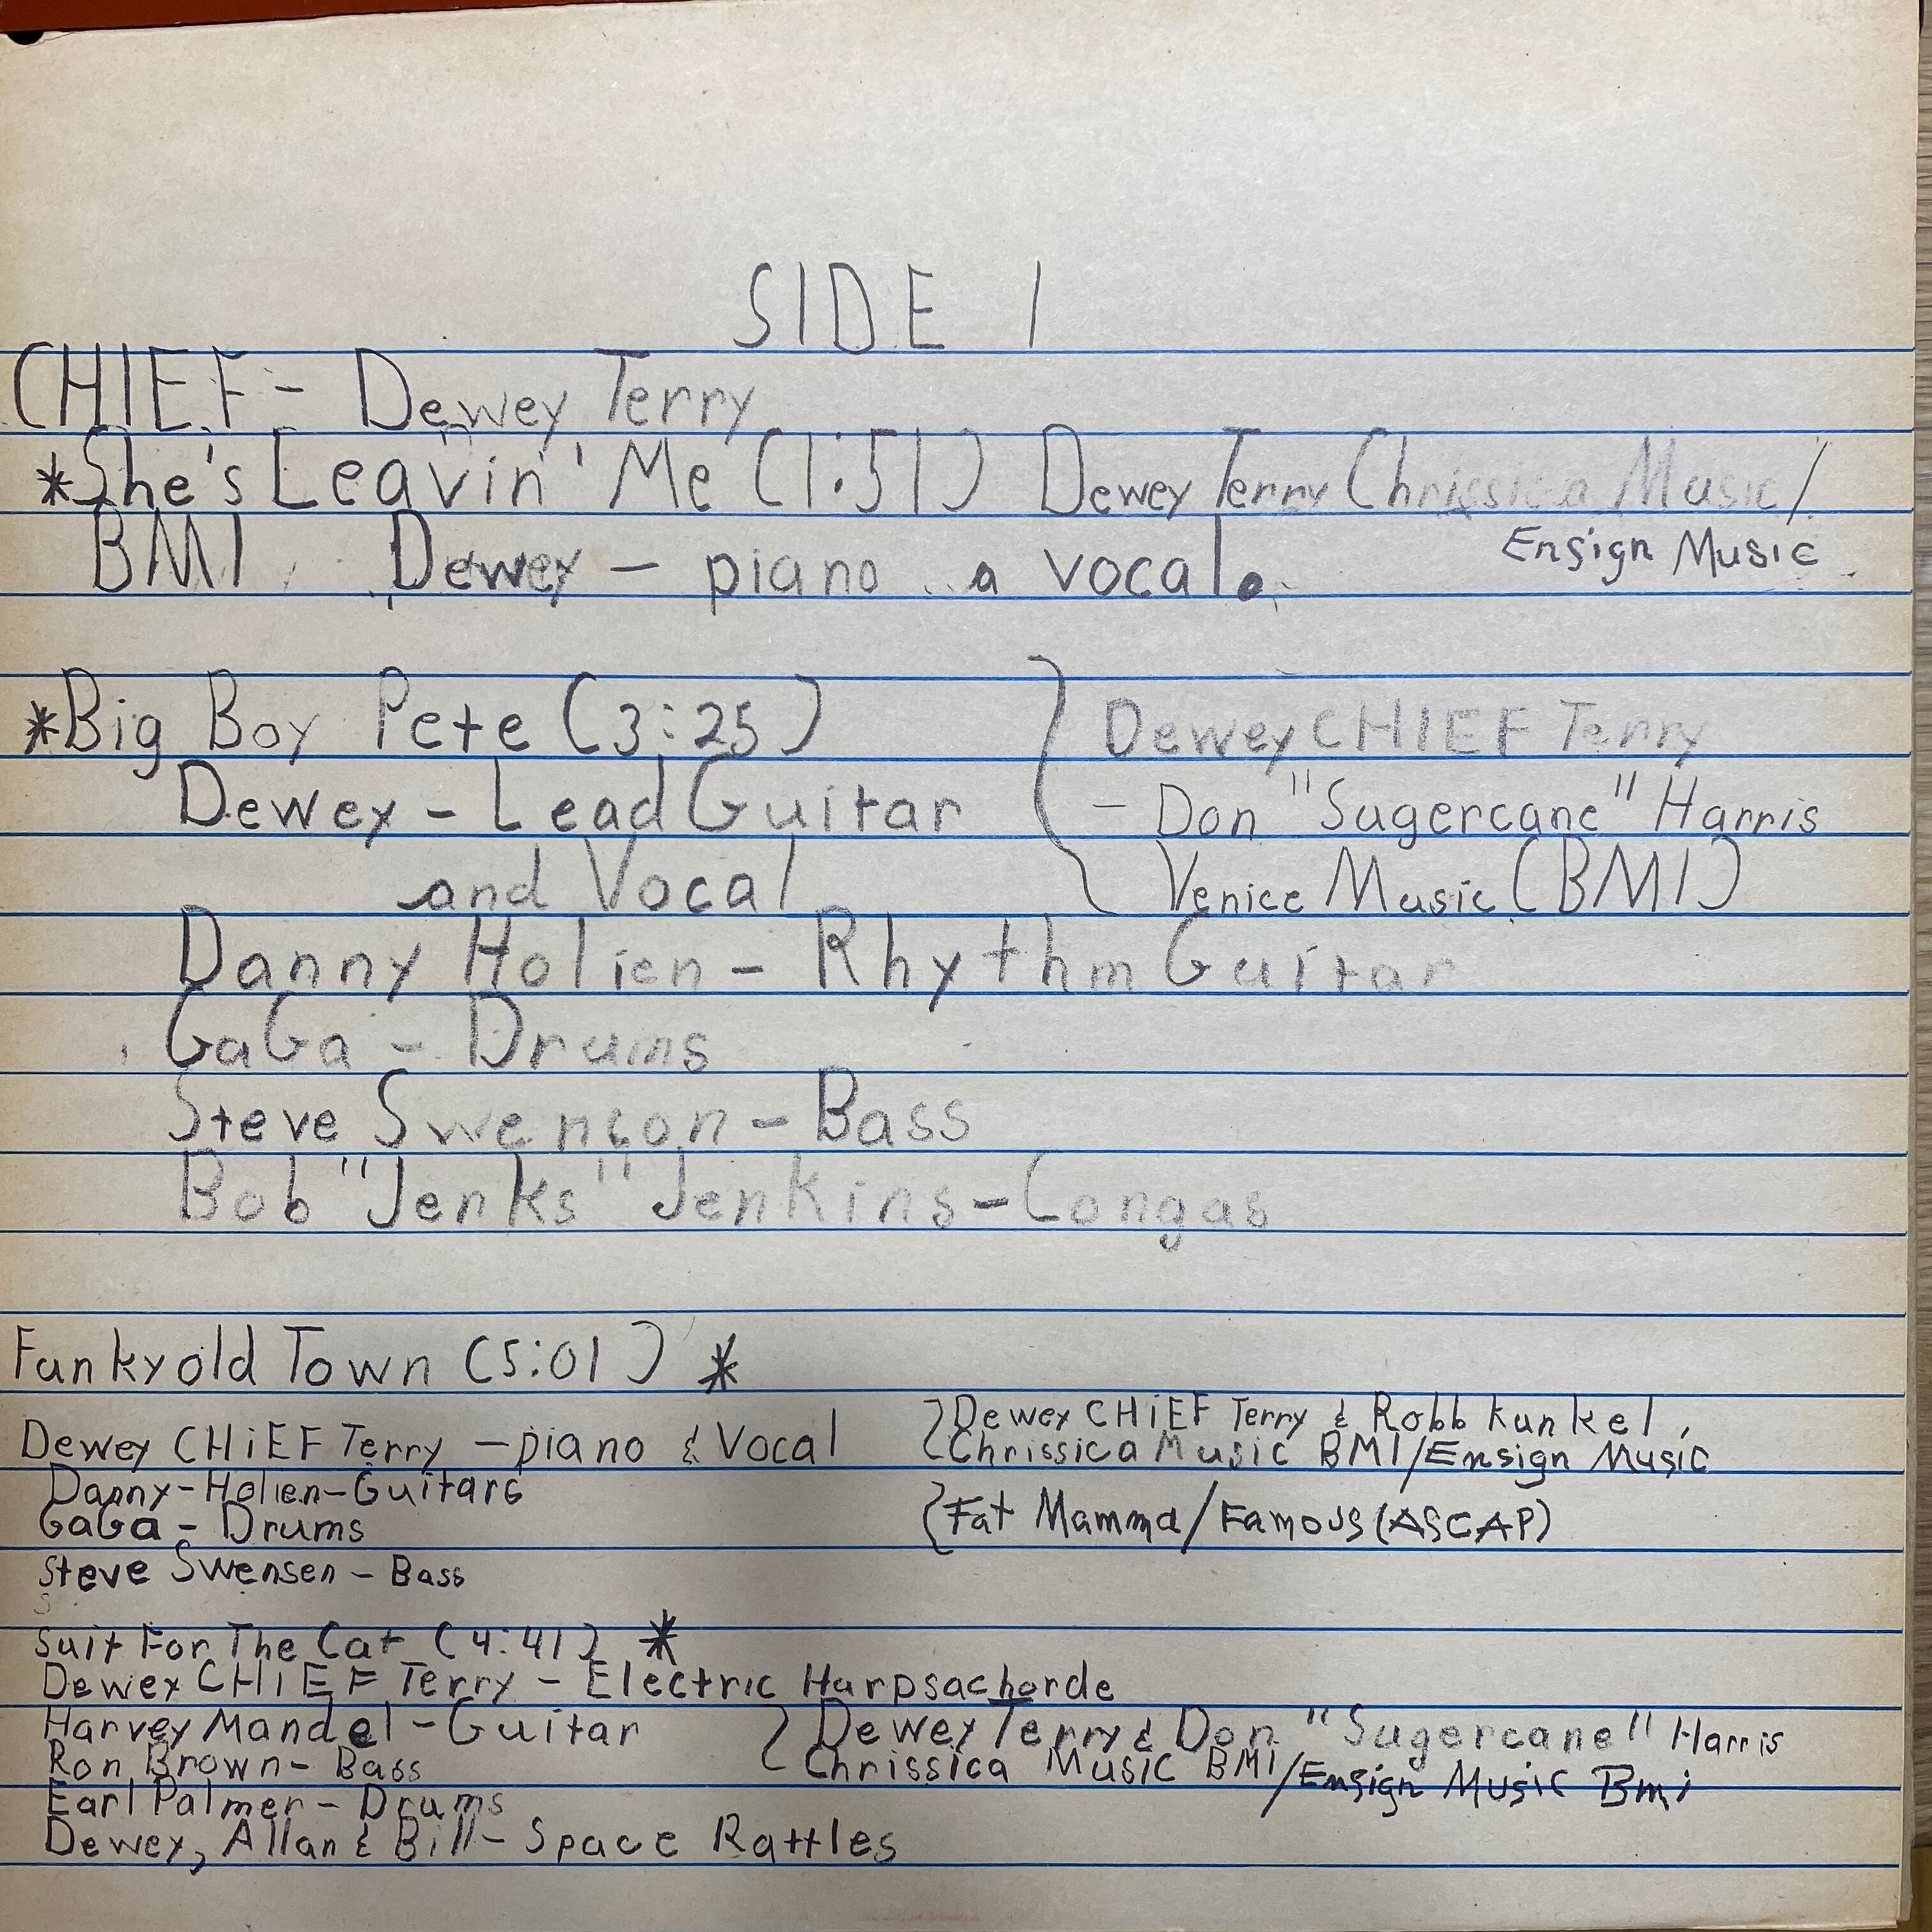 SIDE 1
CHIEF - Dewey Terry
*She's Leavin' Me (1:51) Dewey Terry Chrissica Music/
BMI Dewey - piano a vocal.
Ensign Music
*Big Boy Pete (3:25)
Dewey CHIEF Terry
Dewey - Lead Guitar
- Don "Sugercane" Harris
and Vocal
Venice Music (BMI)
Danny Holien - Rhythm Guitar
GaGa - Drums
Steve Swenson - Bass
Bob "Jenks" Jenkins - Congas
Funky old Town (5:01) *
Dewey CHiEF Terry & Robb Kunkel,
Dewey CHiEF Terry - piano & Vocal
Chrissica Music BMI/Ensign Music
Danny-Holien-Guitars
Fat Mamma/Famous (ASCAP)
GaGa - Drums
Steve Swensen - Bass
Suit For The Cat (4:41) *
Dewey CHIEF Terry - Electric Harpsachorde
Harvey Mandel - Guitar
Dewey Terry & Don "Sugercane" Harris
Ron Brown - Bass
Chrissica Music BMI/Ensign Music Bmi
Earl Palmer - Drums
Dewey, Allan & Bill - Space Rattles